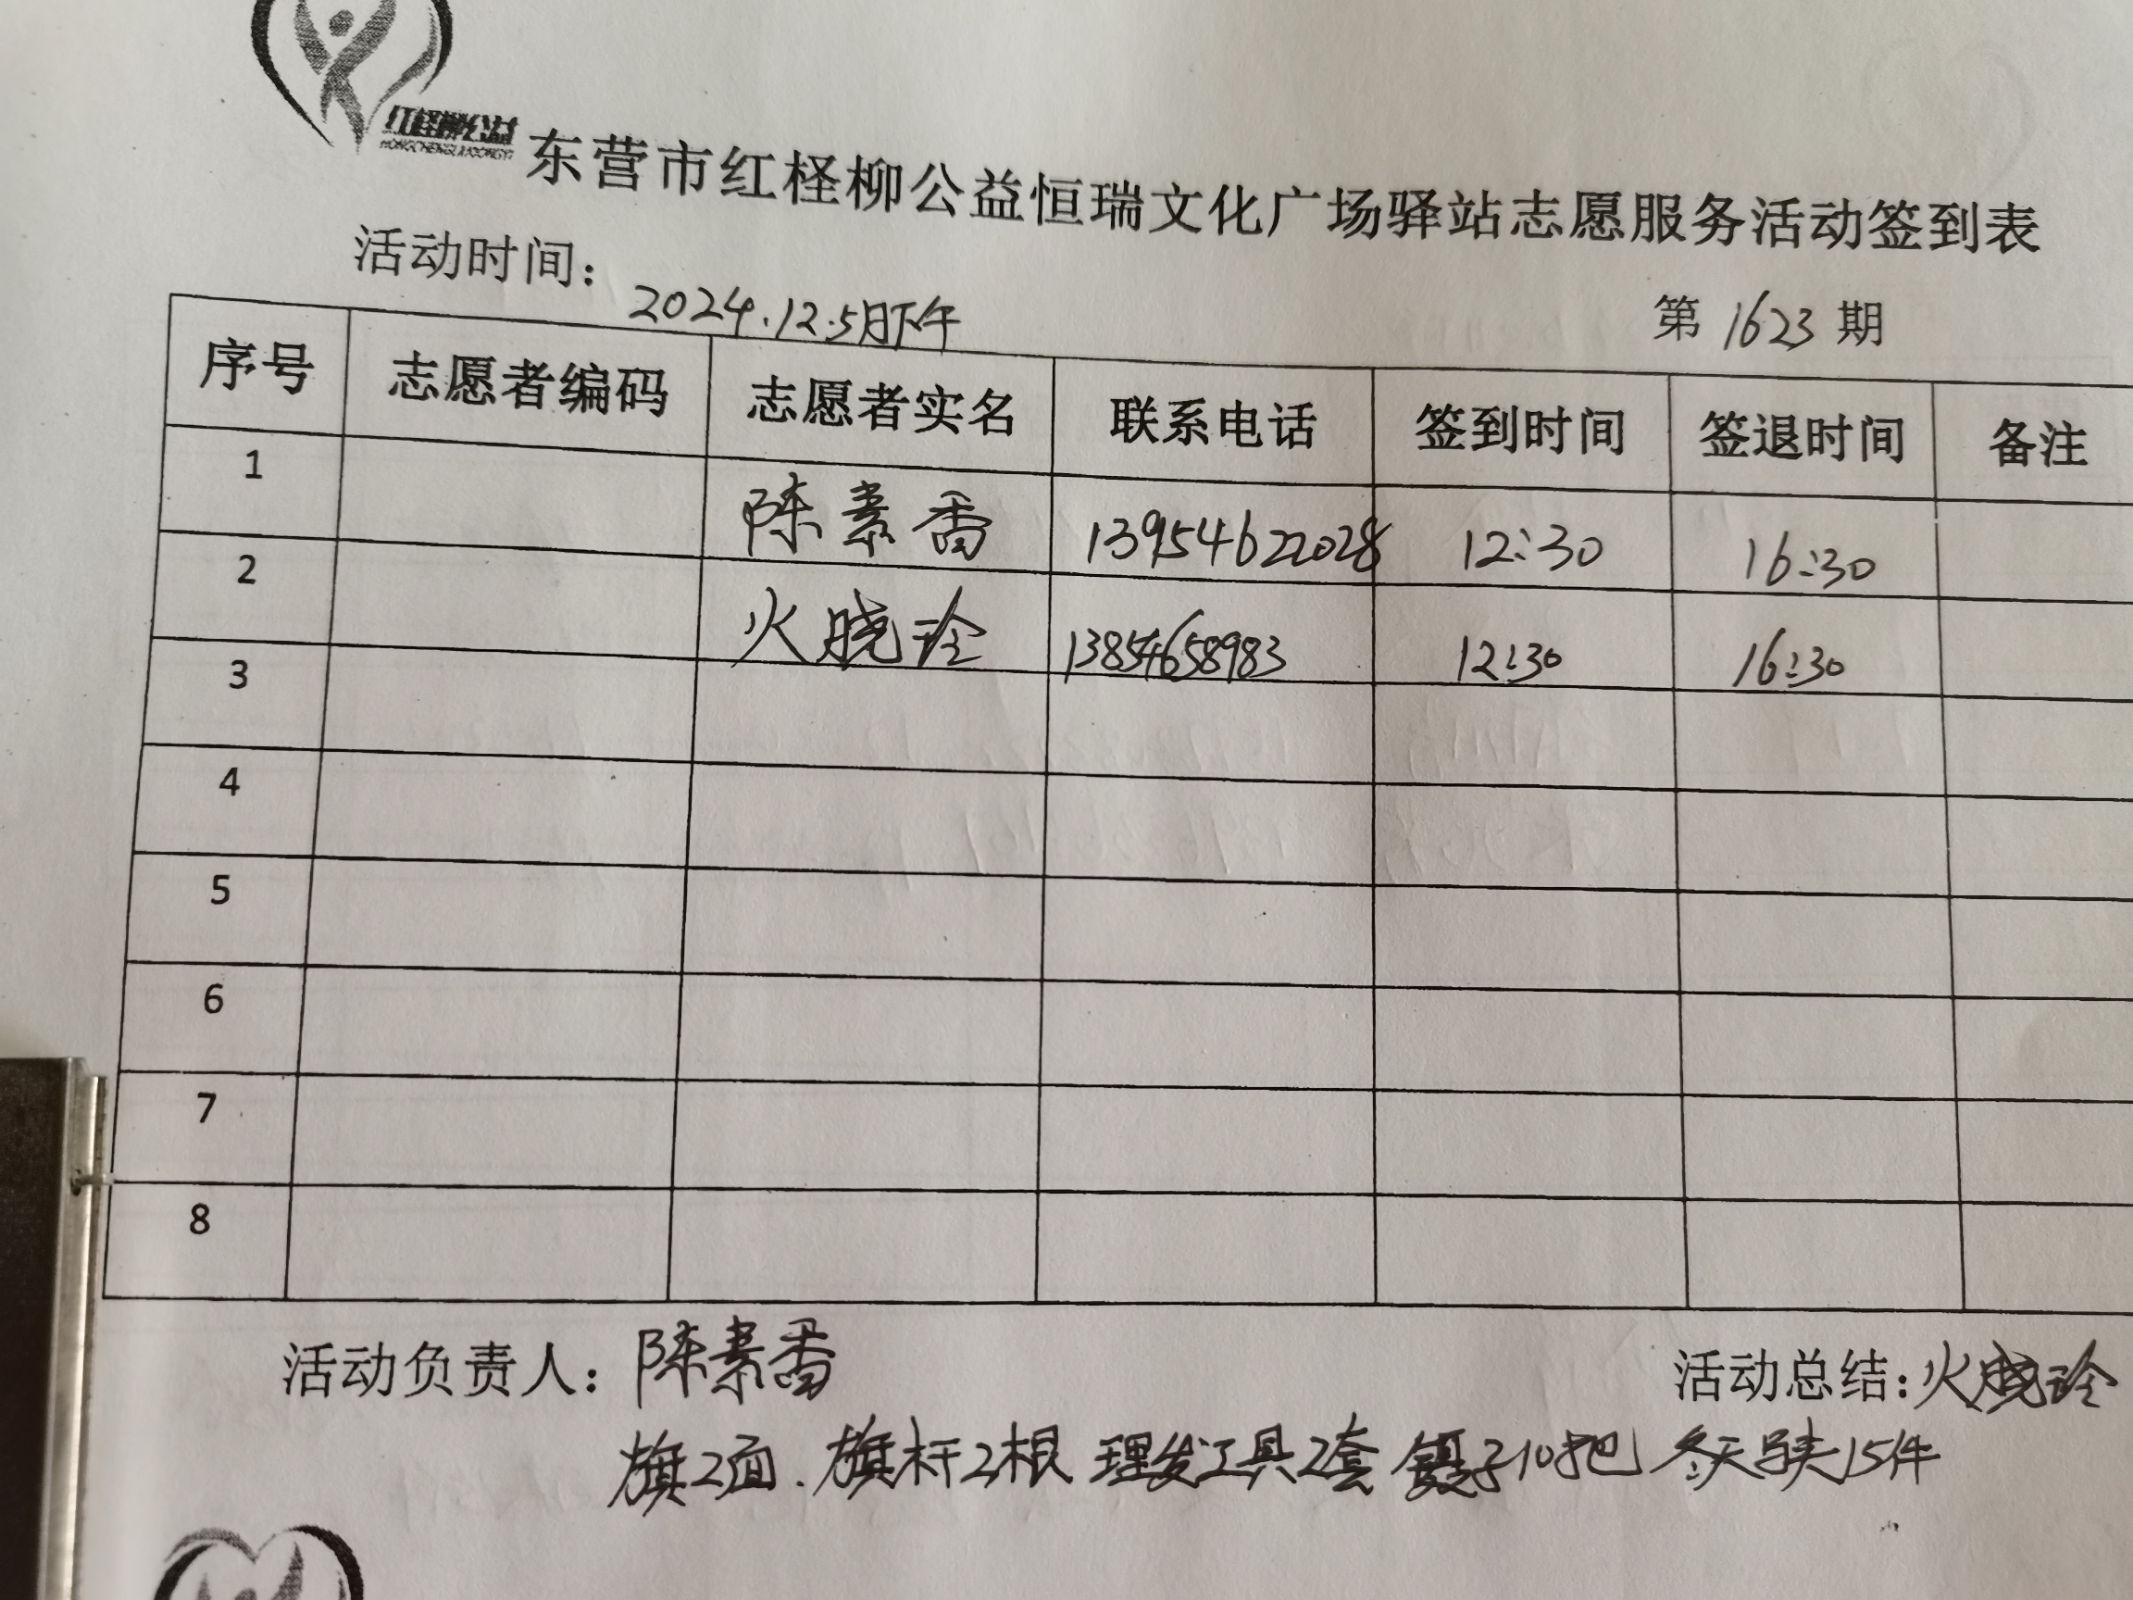 红柽柳公益
HONGCHENGLIUGONGYI
东营市红柽柳公益恒瑞文化广场驿站志愿服务活动签到表
活动时间：2024.12.5日下午 第1623期
序号 志愿者编码 志愿者实名 联系电话 签到时间 签退时间 备注
1 陈素香 13954622028 12:30 16:30
2 火晓玲 13854658983 12:30 16:30
3
4
5
6
7
8
活动负责人：陈素香 活动总结：火晓玲
旗2面.旗杆2根 理发工具2套 镊子10把 冬天马夹15件